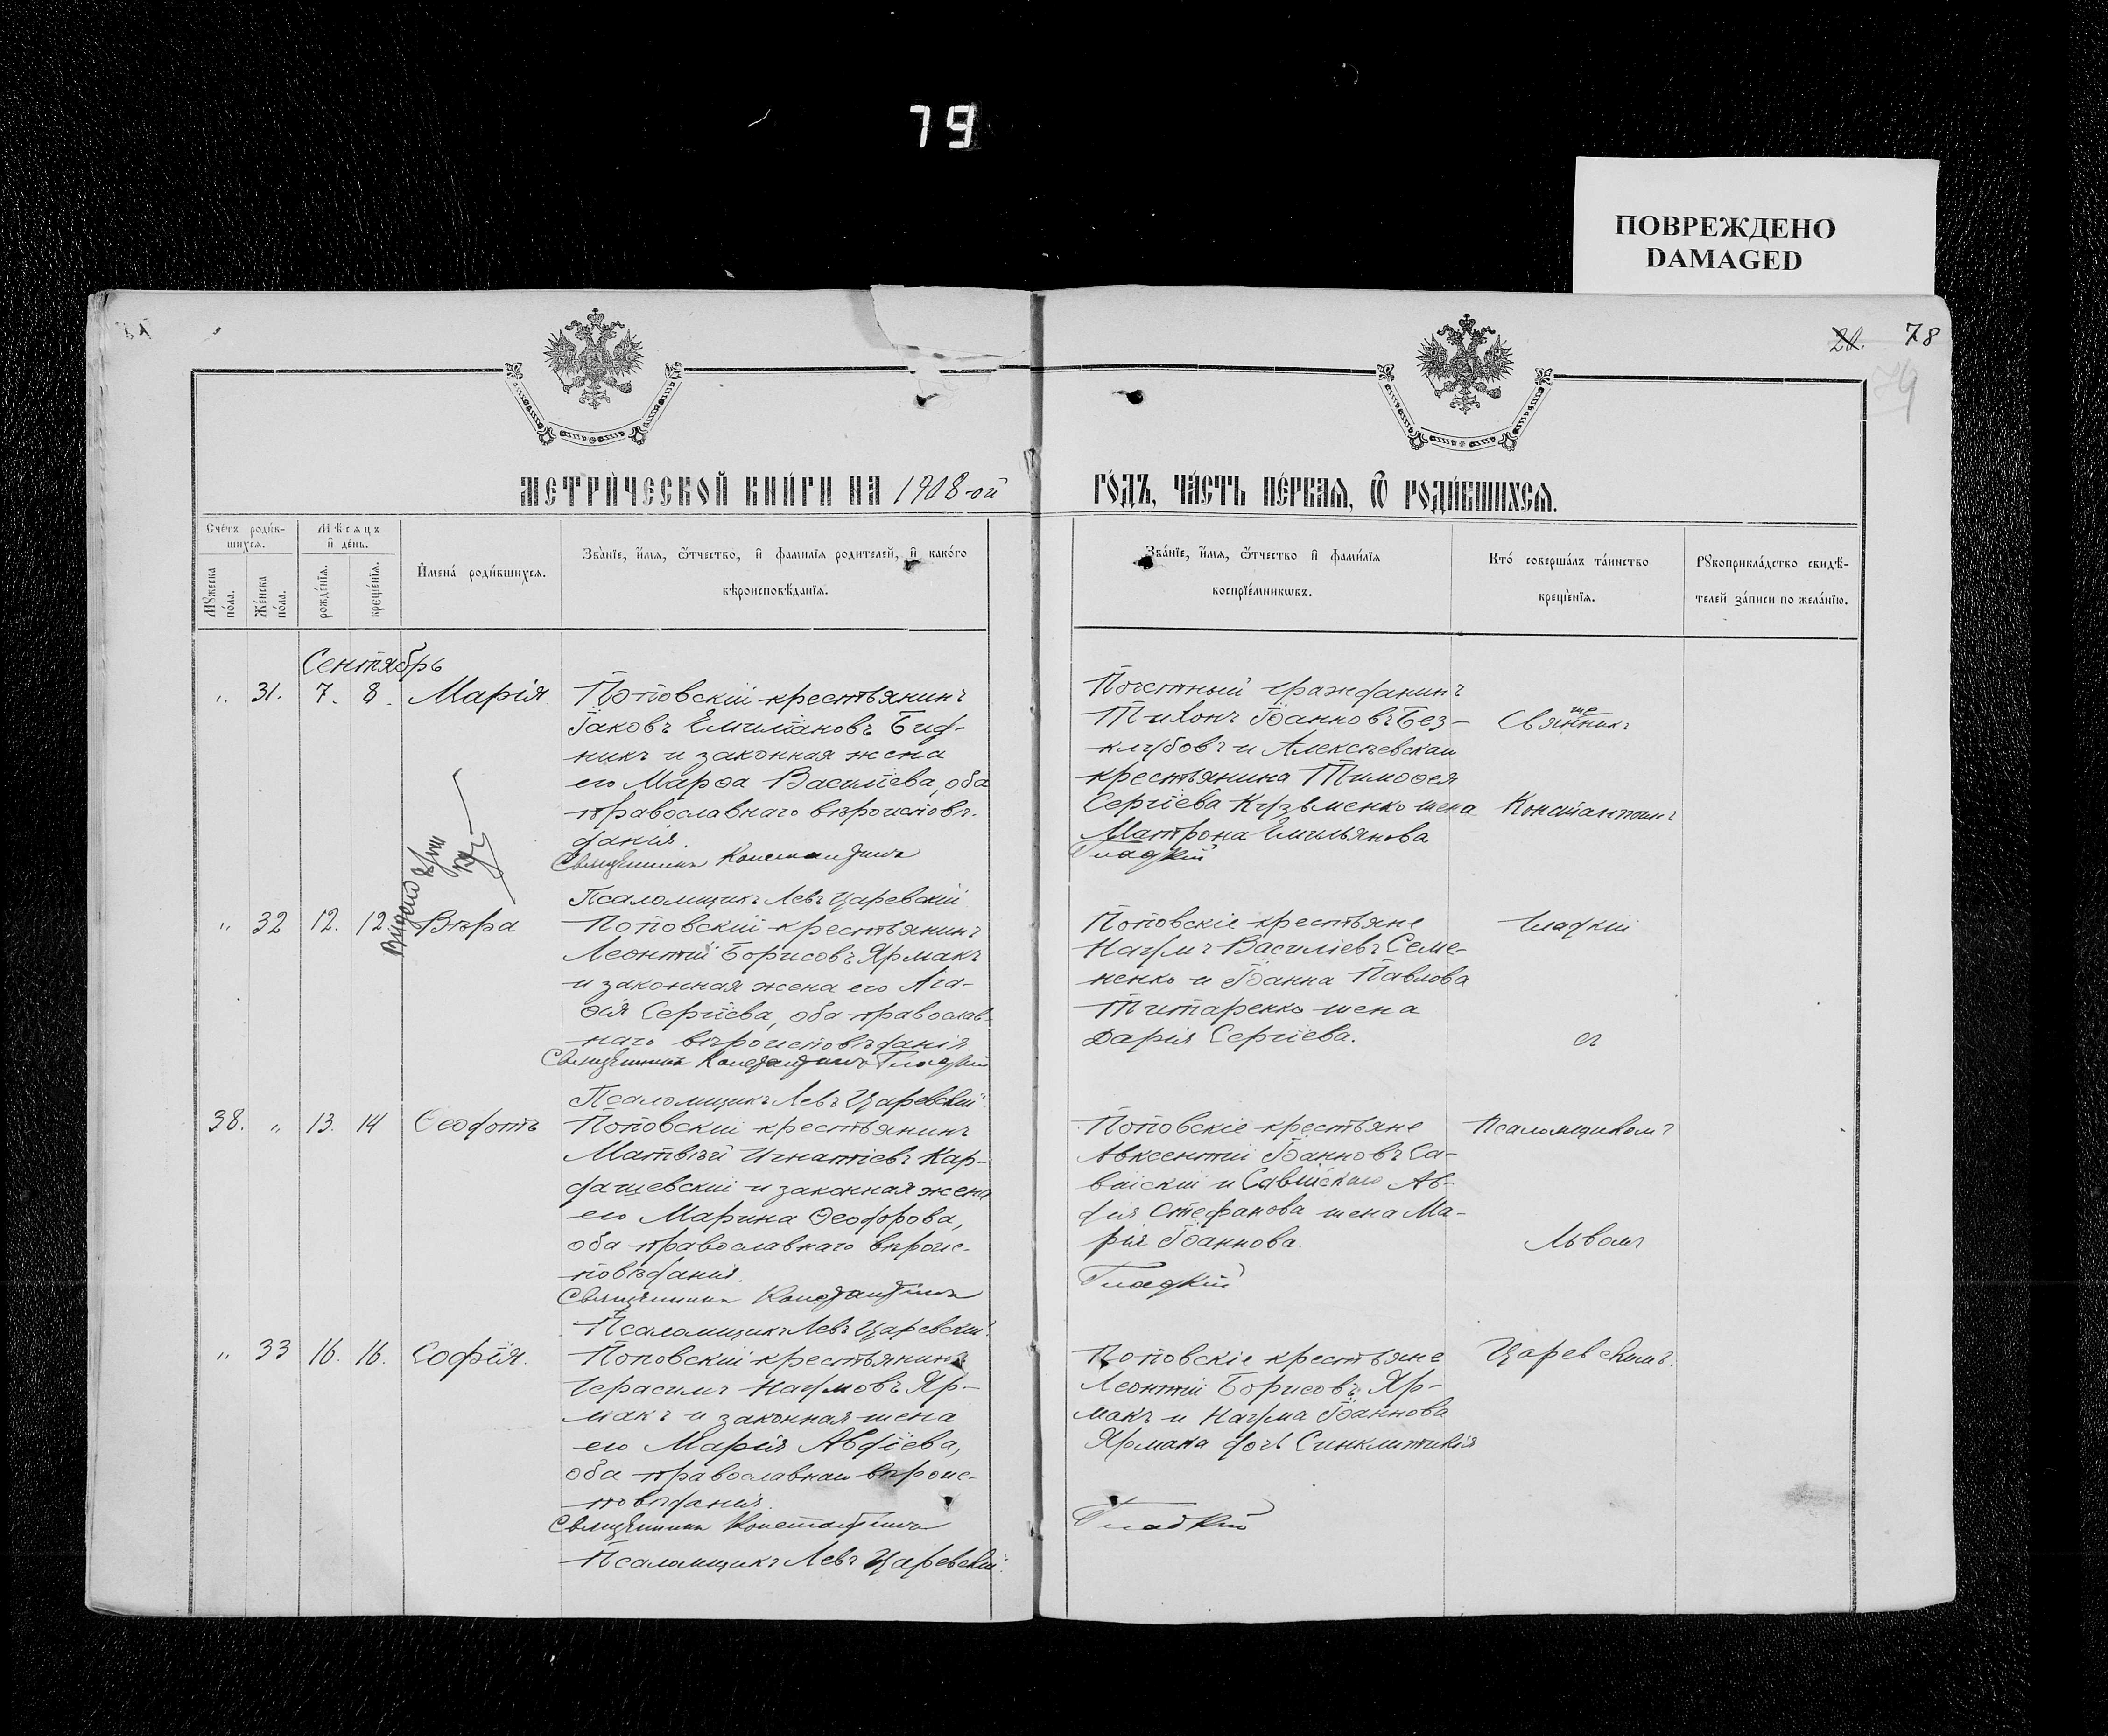 79
ПОВРЕЖДЕНО
DAMAGED
20. 78
79
МЕТРИЧЕСКОЙ КНИГИ НА 1908-ой
ГОДЪ, ЧАСТЬ ПЕРВАЯ, Ѿ РОДИВШИХСЯ.
Счетъ родив-
шихся.
Мѣсяцъ
и день.
Мужеска
пола.
Женска
пола.
рожденїя.
крещенїя.
Имена родившихся.
Званїе, имя, ѿтчество, и фамилїя родителей, и какого
вѣроисповѣданїя.
Званїе, имя, ѿтчество и фамилїя
воспрїемникѡвъ.
Кто совершалъ таинство
крещенїя.
Рꙋкоприкладство свидѣ-
телей записи по желанїю.
Сентябрь
„ 31. 7. 8. Марія
Поповскій крестьянинъ
Іаковъ Емиліановъ Бид-
никъ и законная жена
его Марѳа Василіева, оба
православнаго вѣроисповѣ-
данія.
Священникъ Константинъ
Псаломщикъ Левъ Царевскій
Почетный гражданинъ
Тихонъ Іоанновъ Без-
клубовъ и Алексѣевскаго
крестьянина Тимоѳея
Сергіева Кузьменко жена
Матрона Емильянова
Гладкій
Священникъ
Константинъ
„ 32 12. 12 Вѣра
Поповскій крестьянинъ
Леонтій Борисовъ Ярмакъ
и законная жена его Ага-
ѳія Сергіева, оба православ-
наго вѣроисповѣданія.
Священникъ Константинъ Гладкій
Псаломщикъ Левъ Царевскій
Поповскіе крестьяне
Наумъ Василіевъ Семе-
ненко и Іоанна Павлова
Титаренко жена
Дарія Сергіева.
Гладкій
съ
38. „ 13. 14 Ѳеодотъ
Поповскій крестьянинъ
Матвѣй Игнатіевъ Кар-
дашевскій и законная жена
его Марина Ѳеодорова,
оба православнаго вѣроис-
повѣданія.
Священникъ Константинъ
Псаломщикъ Левъ Царевскій.
Поповскіе крестьяне
Авксентій Іоанновъ Са-
війскій и Савійскаго Ав-
дія Стефанова жена Ма-
рія Іоаннова.
Гладкій
Псаломщикомъ
Львомъ
„ 33 16. 16. Софія.
Поповскій крестьянинъ
Герасимъ Наумовъ Яр-
макъ и законная жена
его Марія Авдіева,
оба православнаго вѣроис-
повѣданія.
Священникъ Константинъ
Псаломщикъ Левъ Царевскій.
Поповскіе крестьяне
Леонтій Борисовъ Яр-
макъ и Наума Іоаннова
Ярмака дочь Синклитикія
Гладкій
Царевскимъ.